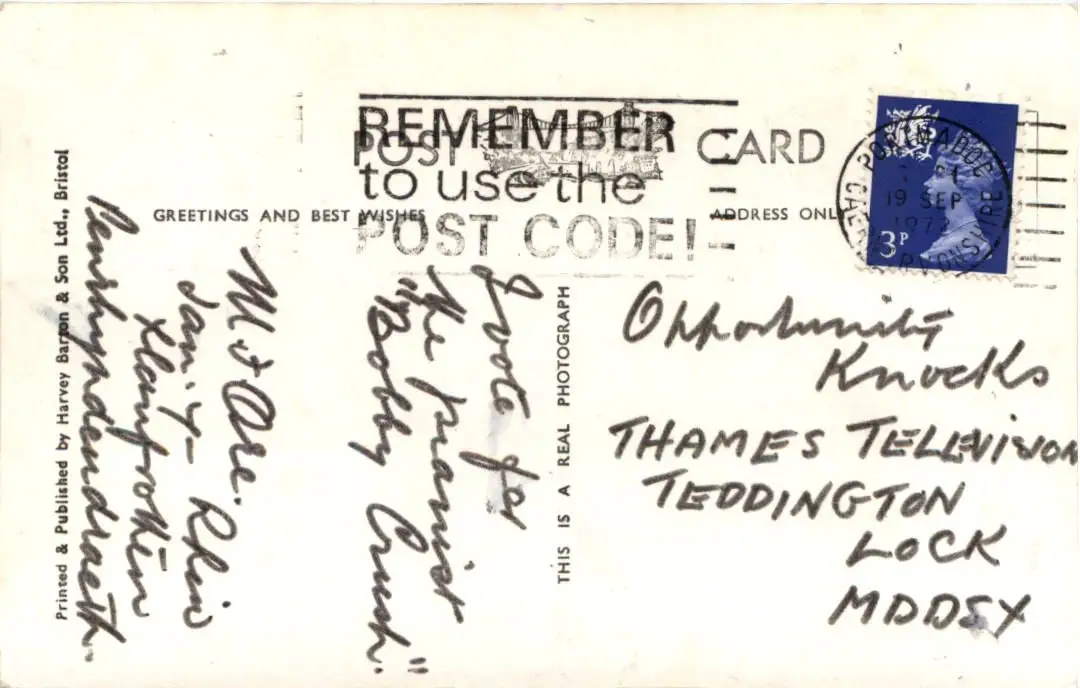 REMEMBER
to use the
POST CODE!
POST CARD
GREETINGS AND BEST WISHES
ADDRESS ONLY
PORTMADOC
19 SEP
1972
3P
I vote for
the pianist
"Bobby Crush."
Tan-Y-Rhiw
Llanfrothen
Penrhyndeudraeth.
Opportunity
Knocks
THAMES TELEVISION
TEDDINGTON
LOCK
MDDSX
THIS IS A REAL PHOTOGRAPH
Printed & Published by Harvey Barton & Son Ltd., Bristol